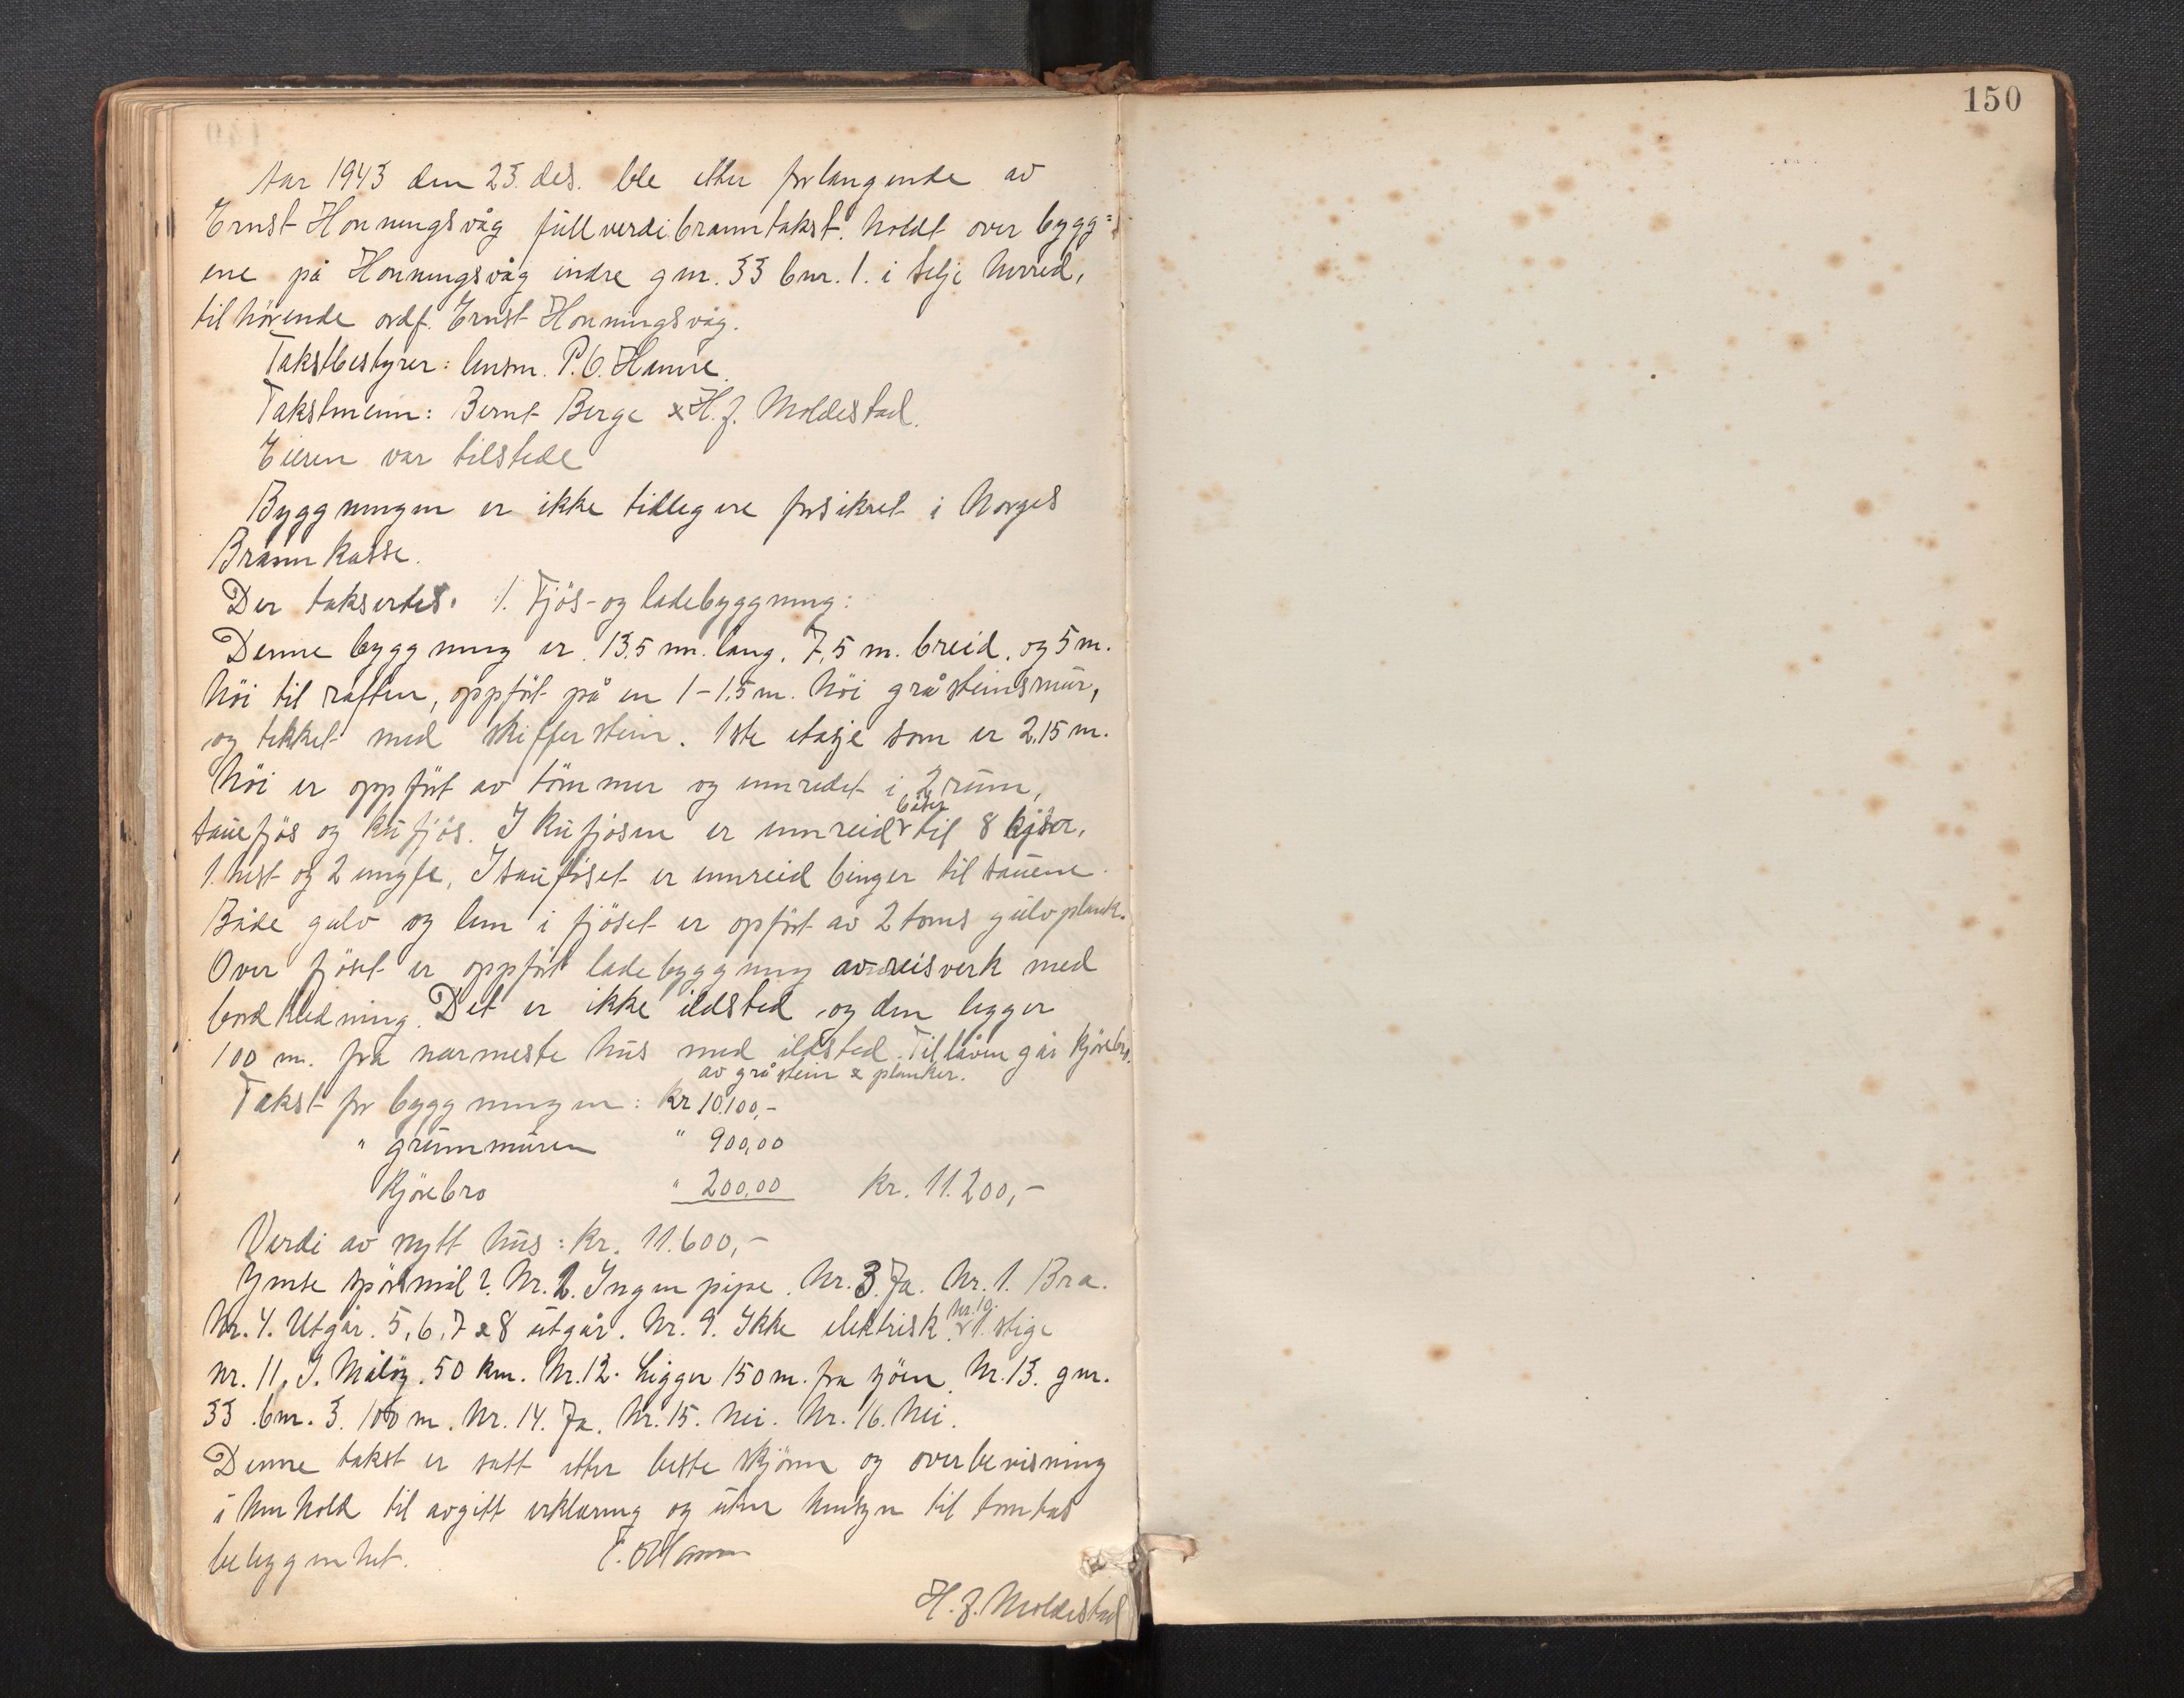 150
Aar 1943 den 23. des. ble etter forlangende av
Ernst Honningsvåg fullverdibranntakst holdt over bygg=
ene på Honningsvåg indre gnr. 33 bnr. 1. i Selje herred,
tilhörende ordf. Ernst Honningsvåg.
Takstbestyrer: lensm. P.O. Hamre.
Takstmenn: Bernt Berge & H. J. Moldestad.
Eieren var tilstede
Byggningen er ikke tidlegere forsikret i Norges
Brannkasse.
Der taksertes. 1. Fjös- og ladebyggning:
Denne byggning er 13,5 m. lang. 7,5 m. breid. og 5 m.
höi til raften, oppfört på en 1-1,5 m. höi gråsteinsmur,
og tekket med skifferstein. 1ste etasje som er 2.15 m.
höi er oppfört av tömmer og innredet i 2 rum,
sauefjös og kufjös. I kufjösen er innreid båser til 8 kjör,
1. hest og 2 ungfe, I saufjöset er innreid binger til sauene.
Både gulv og lem i fjöset er opfört av 2 toms gulvplank.
Over fjöset er oppfört ladebyggning av reisverk med
bordkledning. Det er ikke ildsted og den ligger
100 m. fra nærmeste hus med ildsted. Til låven går kjörebro
av gråstein & planker.
Takst for byggningen: kr 10.100,-
" grunnmuren " 900,00
Kjörebro " 200,00 Kr. 11.200,-
Verdi av nytt hus: kr. 11.600,-
Ymse spörsmål? Nr. 2. Ingen pipe. Nr. 3. Ja. Nr. 1. Bra.
Nr. 4. Utgår. 5, 6, 7 & 8 utgår. Nr. 9. Ikke elektrisk. Nr. 10. 1. stige
nr. 11. I. Målöy. 50 km. Nr. 12. Ligger 150 m. fra sjöen. Nr. 13. gnr.
33. bnr. 3. 100 m. Nr. 14. Ja. Nr. 15. Nei. Nr. 16. Nei.
Denne takst er satt etter beste skjönn og overbevisning
i henhold til avgitt erklæring og uten hensyn til tomtas
bebyggenhet. P. O Hamre
H. J. Moldestad